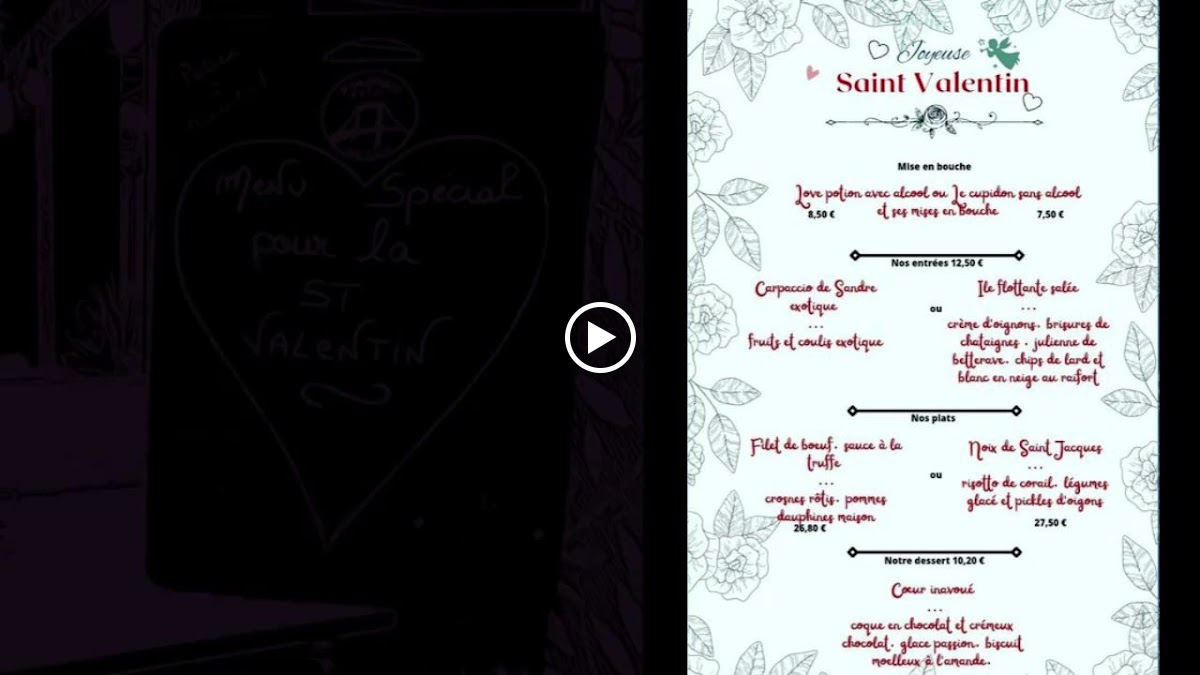 Menu Spécial
pour la
ST
VALENTIN
Joyeuse
Saint Valentin
Mise en bouche
Love potion avec alcool ou Le cupidon sans alcool
et ses mises en bouche
8,50 € 7,50 €
Nos entrées 12,50 €
Carpaccio de Sandre
exotique
...
fruits et coulis exotique
ou
Ile flottante salée
...
crème d'oignons, brisures de
chataignes, julienne de
betterave, chips de lard et
blanc en neige au raifort
Nos plats
Filet de boeuf, sauce à la
truffe
...
crosnes rôtis, pommes
dauphines maison
26,80 €
ou
Noix de Saint Jacques
...
risotto de corail, légumes
glacé et pickles d'oigons
27,50 €
Notre dessert 10,20 €
Cœur inavoué
...
coque en chocolat et crémeux
chocolat, glace passion, biscuit
moelleux à l'amande.